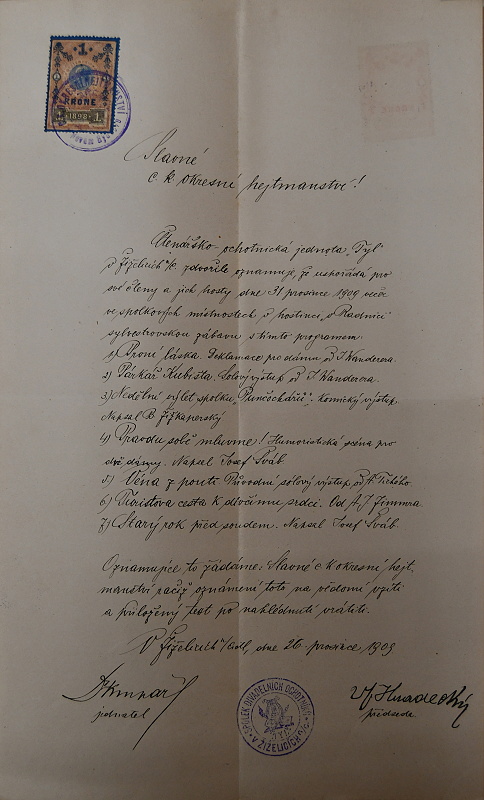 1
KRONE
1 1898 1
Slavné
c. k. okresní hejtmanství!
Čtenářsko-ochotnická jednota „Tyl“
v Žíželicích n/C. zdvořile oznamuje, že uspořádá pro
své členy a jich hosty dne 31 prosince 1909 večer
ve spolkových místnostech v hostinci „v Radnici“
sylvestrovskou zábavu s tímto programem:
1) První láska. Deklamace pro dámu od J. Wanderera.
2) Párkář Kubišta, Sólový výstup od J. Wanderera.
3) Nedělní výlet spolku „Punčochářů“: Komický výstup.
Napsal B. Žižkaperský
4) Pravdu sobě mluvme! Humoristická scéna pro
dvě dámy. Napsal Josef Šváb
5) Věna z pouti Původní sólový výstup od A. Tichého
6) Turistova cesta k dívčímu srdci. Od A. J.
7) Starý rok před soudem. Napsal Josef Šváb.
Oznamujíce to žádáme: Slavné c. k. okresní hejt.
manství račiž oznámení toto na vědomí vzíti
a přiložený text po nahlédnutí vrátiti.
V Žíželicích n/Cidl, dne 26 prosince 1909
jednatel
V. Hradecký
předseda
SPOLEK DIVADELNÍCH OCHOTNÍKŮ
V ŽIŽELICÍCH n/C.